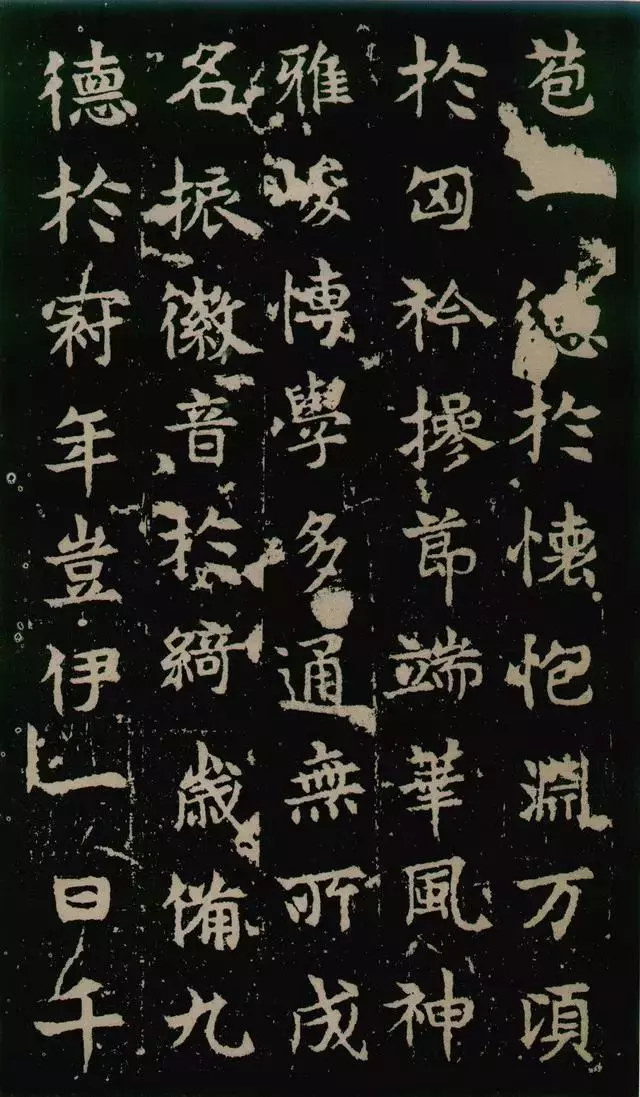 苞德於懷抱淵万頃
於匈衿操節端華風神
雅峻博學多通無所成
名振徽音於綺歲備九
德於冠年豈伊一日千